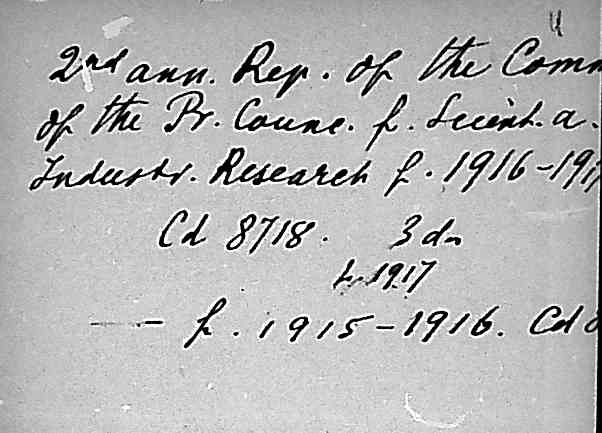 2nd ann. Rep. of the Comm
of the Pr. Counc. f. Scient. a.
Industr. Research f. 1916-191
Cd 8718. 3 d
1917
— f. 1915-1916. Cd